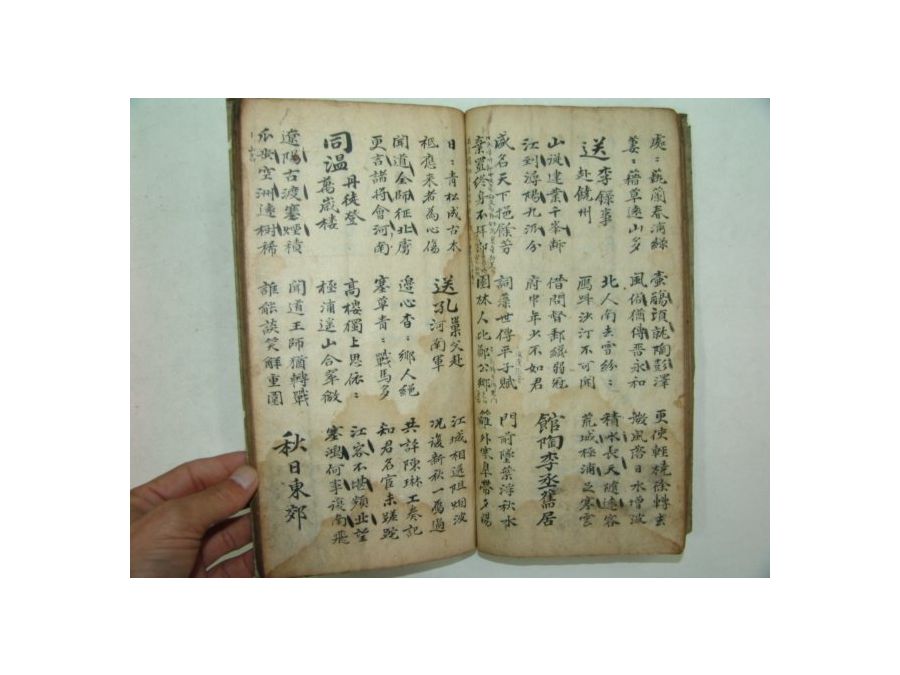 處〻蓺蘭春浦綠
萋〻藉草遠山多
壺觴須就陶彭澤
風俗猶傳晉永和
更使輕橈徐轉去
微風落日水增波
送李錄事赴饒州
北人南去雪紛〻
鴈呌沙汀不可聞
積水長天隨遠客
荒城極浦足寒雲
山從建業千峯斷
江到潯陽九派分
借問督郵纔弱冠
府中年少不如君
館陶李丞舊居
盛名天下挹餘芳
棄置終身不拜郎
詞藻世傳平子賦
園林人比鄭公鄉
門前墜葉浮秋水
籬外寒皐帶夕陽
日〻青松成古木
秪應來者為心傷
送孔巢父赴河南軍
江城相送阻烟波
况復新秋一鴈過
聞道全師征北虜
更言諸將會河南
邊心杳〻鄉人絕
塞草青〻戰馬多
共許陳琳工奏記
知君名宦未蹉跎
同溫丹徒登萬歲樓
高樓獨上思依〻
極浦遙山合翠微
江客不堪頻北望
塞鴻何事復南飛
遼陽古渡寒煙積
瓜步空洲遠樹稀
聞道王師猶轉戰
誰能談笑解重圍
秋日東郊